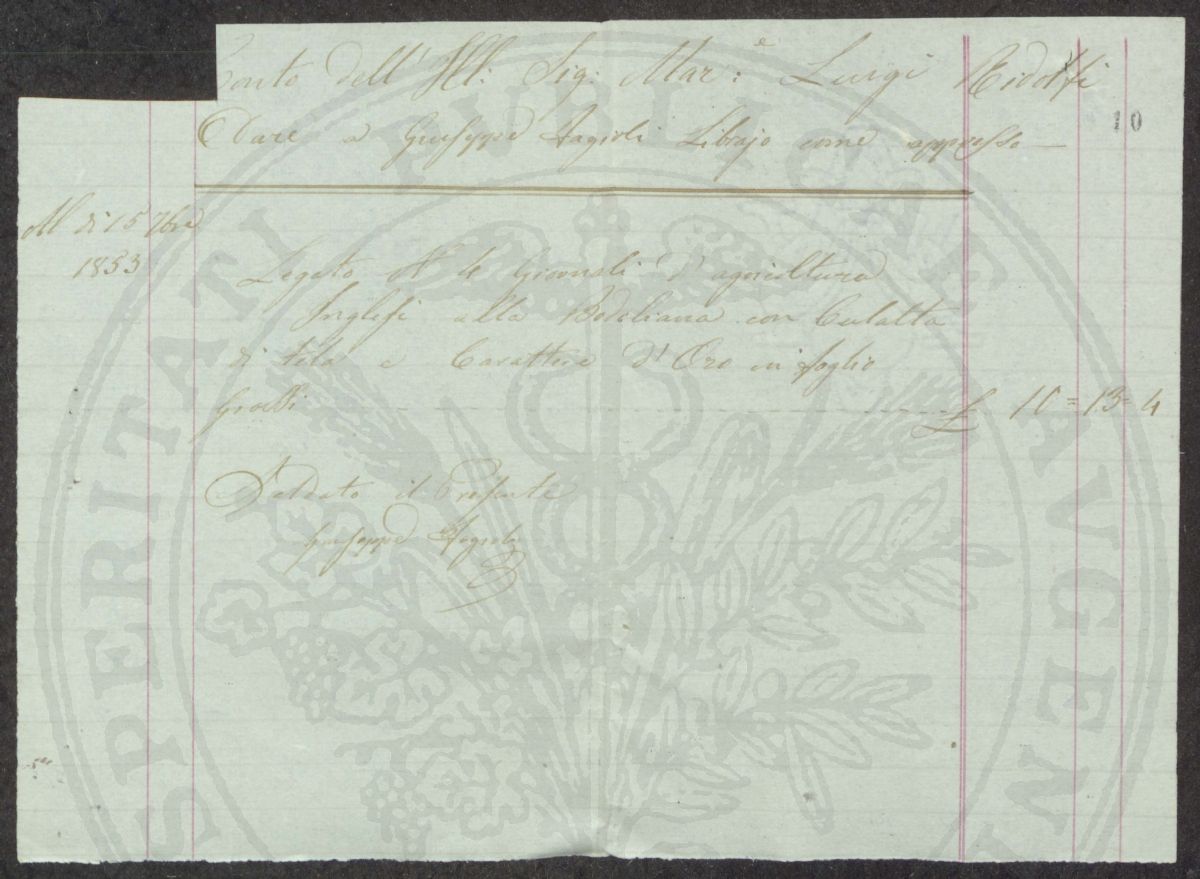 Conto dell' Ill: Sig: Mar:e Luigi Ridolfi
Dare a Giuseppe Fagioli Librajo come appresso
10
A dì 15 7bre
1853
Legato N 4 Giornali d'agricultura
Inglesi alla Bodoliana con Culatta
di tela e Carattere d'Oro in foglio
Grossi £ 10 = 13 = 4
Saldato il Presente
Giuseppe Fagioli
SPERITATI PVBLICAE AVGEN